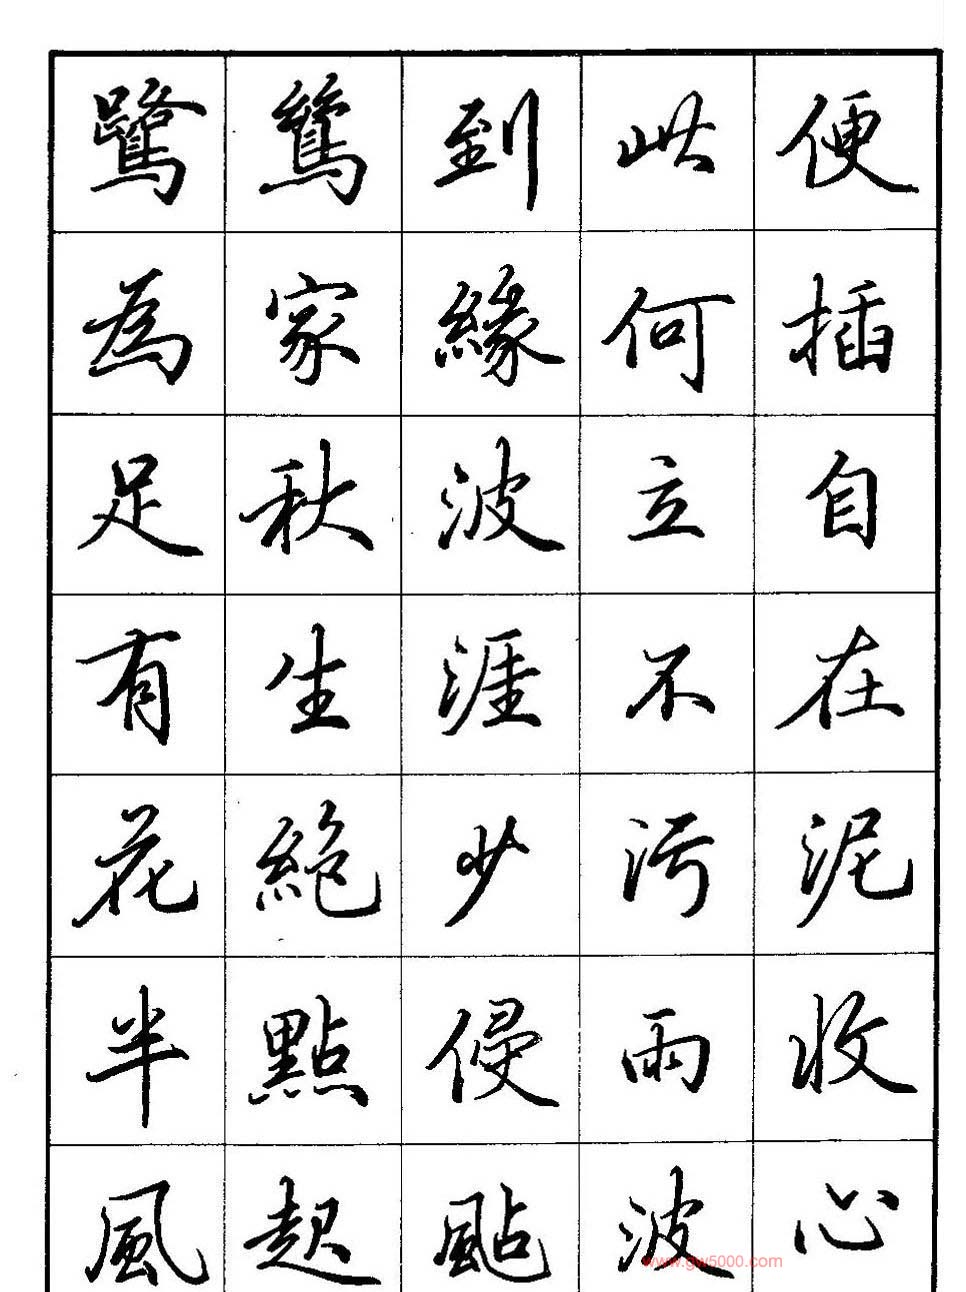 鷺鷥到此便
為家緣何插
足秋波立自
有生涯不在
花絕少污泥
半點侵雨收
風起颭波心
www.gw5000.com